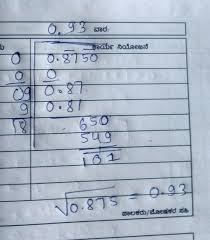 0.93 ವಾರ:
ಕಾರ್ಯ ನಿಯೋಜನೆ
0 0.8750
0 0
09 0.87
9 0.81
18 650
549
101
√0.875 = 0.93
ಪಾಲಕರು/ಪೋಷಕರ ಸಹಿ